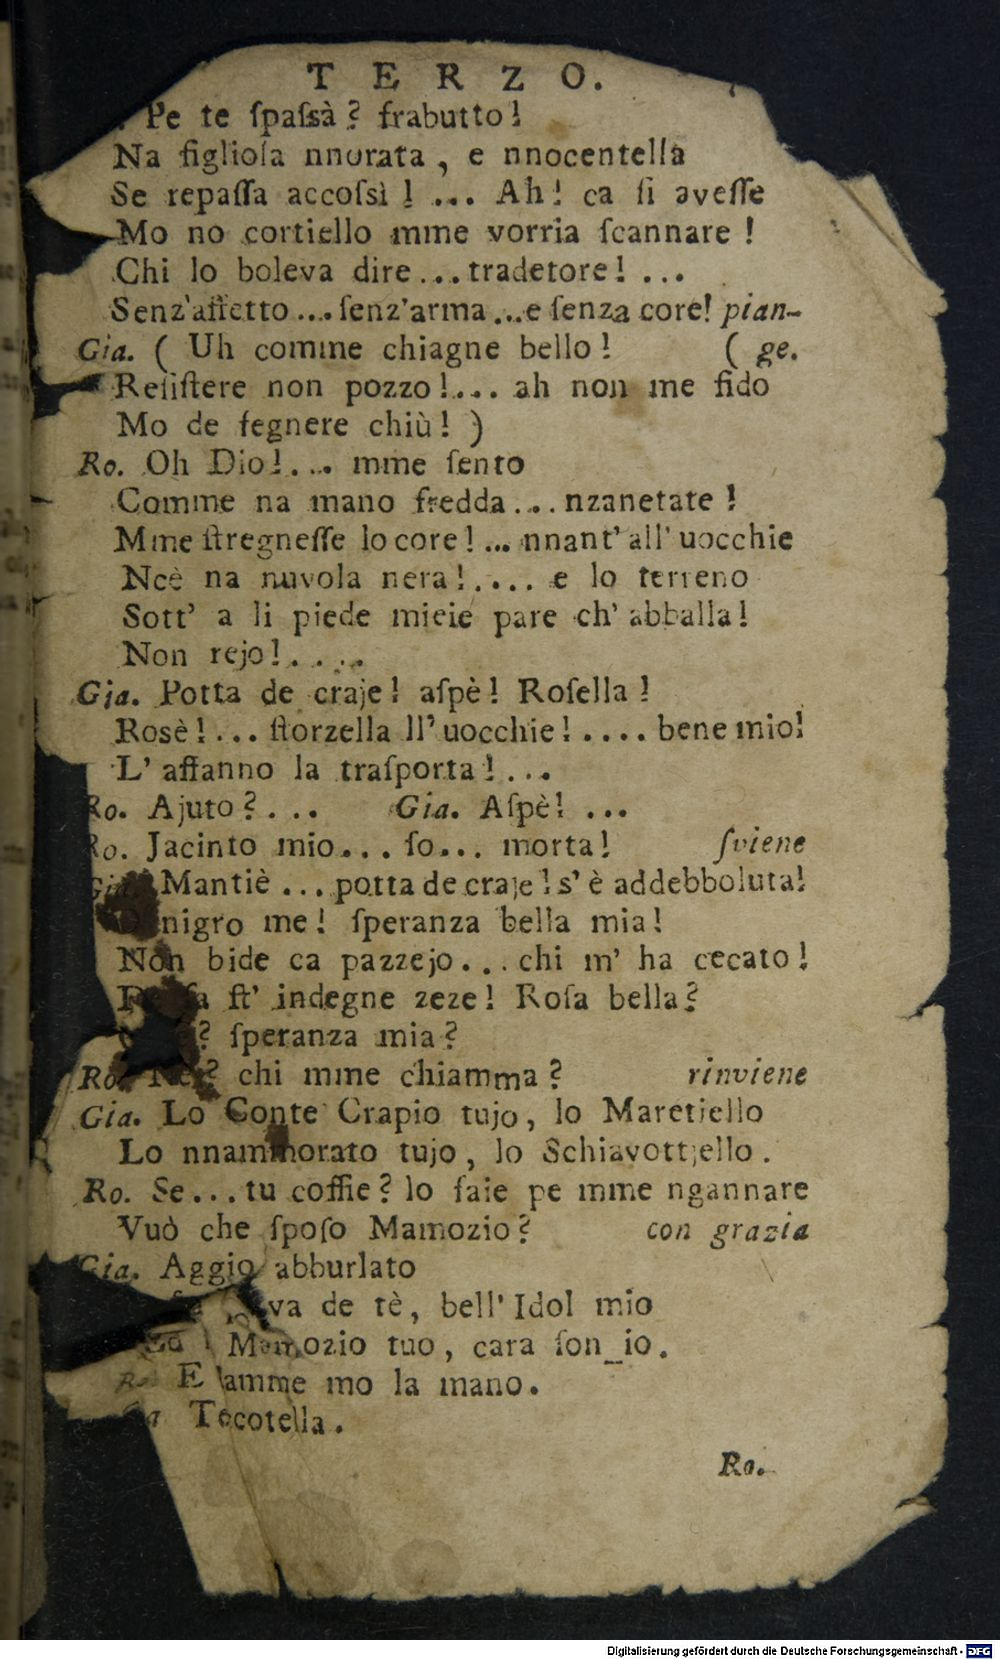 T E R Z O.
Pe te ſpaſsà? frabutto!
Na figliola nnorata, e nnocentella
Se repaſſa accoſsì! ... Ah! ca ſi aveſſe
Mo no cortiello mme vorria ſcannare!
Chi lo boleva dire... tradetore! ...
Senz'affetto... ſenz'arma... e ſenza core! pian-
Gia. ( Uh comme chiagne bello! ( ge.
Reſiſtere non pozzo!... ah non me fido
Mo de fegnere chiù! )
Ro. Oh Dio!... mme ſento
Comme na mano fredda... nzanetate!
Mme ſtregneſſe lo core!... nnant' all' uocchie
Ncè na nuvola nera!.... e lo terreno
Sott' a li piede mieie pare ch' abballa!
Non rejo!....
Gia. Potta de craje! aſpè! Roſella!
Rosè!... ſtorzella ll' uocchie!.... bene mio!
L' affanno la traſporta!...
Ro. Ajuto?... Gia. Aſpè! ...
Ro. Jacinto mio... ſo... morta! ſviene
Gia. Mantiè... potta de craje! s' è addebboluta!
nigro me! ſperanza bella mia!
Non bide ca pazzejo... chi m' ha cecato!
ſt' indegne zeze! Roſa bella?
? ſperanza mia?
Ro. Ne? chi mme chiamma? rinviene
Gia. Lo Conte Crapio tujo, lo Maretiello
Lo nnammorato tujo, lo Schiavottiello.
Ro. Se... tu coffie? lo faie pe mme ngannare
Vuò che ſpoſo Mamozio? con grazia
Gia. Aggio abburlato
va de tè, bell' Idol mio
Mamozio tuo, cara ſon_io.
Ro. E lamme mo la mano.
Tecotella.
Ro.
Digitalisierung gefördert durch die Deutsche Forschungsgemeinschaft - DFG